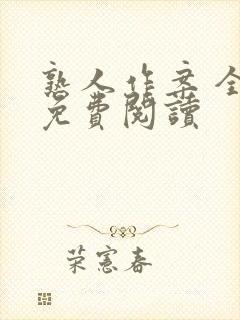 熟人作案全
免費閱讀
荣憲春